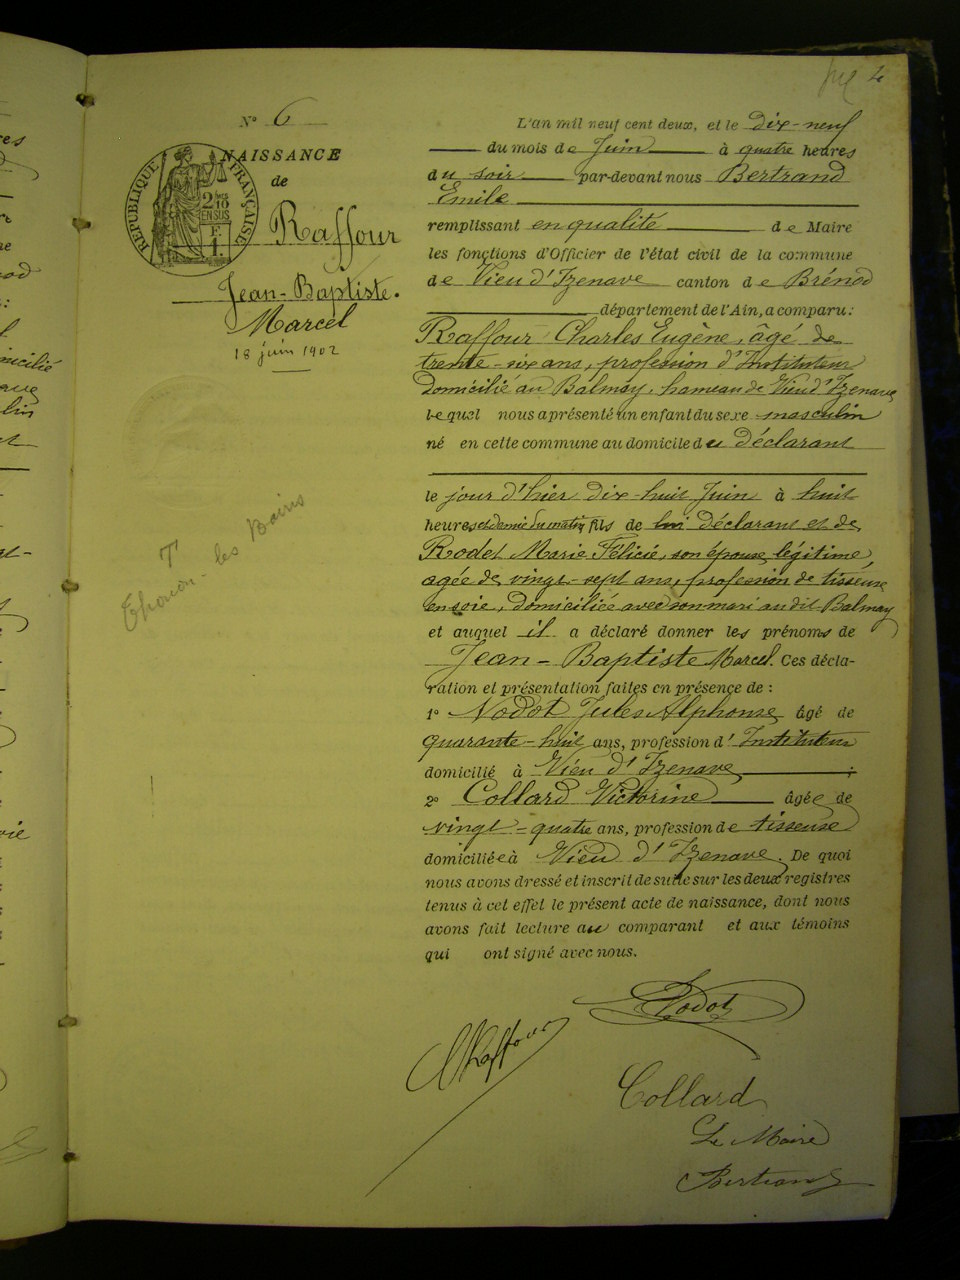 4
N° 6
NAISSANCE
de
RÉPUBLIQUE FRANÇAISE
2/10 EN SUS
F. 1.
Raffour
Jean-Baptiste.
Marcel
18 juin 1902
T
Thonon-les Bains
L'an mil neuf cent deux, et le dix-neuf
du mois de Juin à quatre heures
du soir par-devant nous Bertrand
Emile
remplissant en qualité de Maire
les fonctions d'Officier de l'état civil de la commune
de Vieu d'Izenave canton de Brénod
département de l'Ain, a comparu :
Raffour Charles Eugène, âgé de
trente-six ans, profession d'Instituteur
domicilié au Balmay, hameau de Vieu d'Izenave
Lequel nous a présenté un enfant du sexe masculin
né en cette commune au domicile du déclarant
le jour d'hier dix-huit Juin à huit
heures et demie du matin fils de lui déclarant et de
Rodet Marie Félicie, son épouse légitime,
agée de vingt-sept ans, profession de tisseuse
en soie, domiciliée avec son mari au dit Balmay
et auquel il a déclaré donner les prénoms de
Jean-Baptiste Marcel. Ces décla-
ration et présentation faites en présence de :
1° Nodot Jules Alphonse âgé de
quarante-huit ans, profession d'Instituteur
domicilié à Vieu d'Izenave ;
2° Collard Victorine âgée de
vingt-quatre ans, profession de tisseuse
domiciliée à Vieu d'Izenave. De quoi
nous avons dressé et inscrit de suite sur les deux registres
tenus à cet effet le présent acte de naissance, dont nous
avons fait lecture au comparant et aux témoins
qui ont signé avec nous.
Nodot
Raffour
Collard
Le Maire
Bertrand